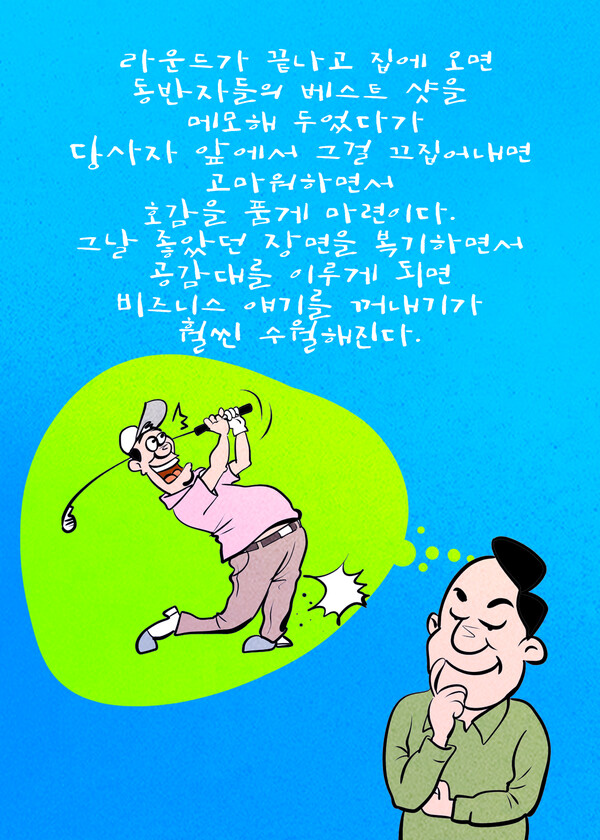 라운드가 끝나고 집에 오면
동반자들의 베스트 샷을
메모해 두었다가
당사자 앞에서 그걸 끄집어내면
고마워하면서
호감을 품게 마련이다.
그날 좋았던 장면을 복기하면서
공감대를 이루게 되면
비즈니스 얘기를 꺼내기가
훨씬 수월해진다.